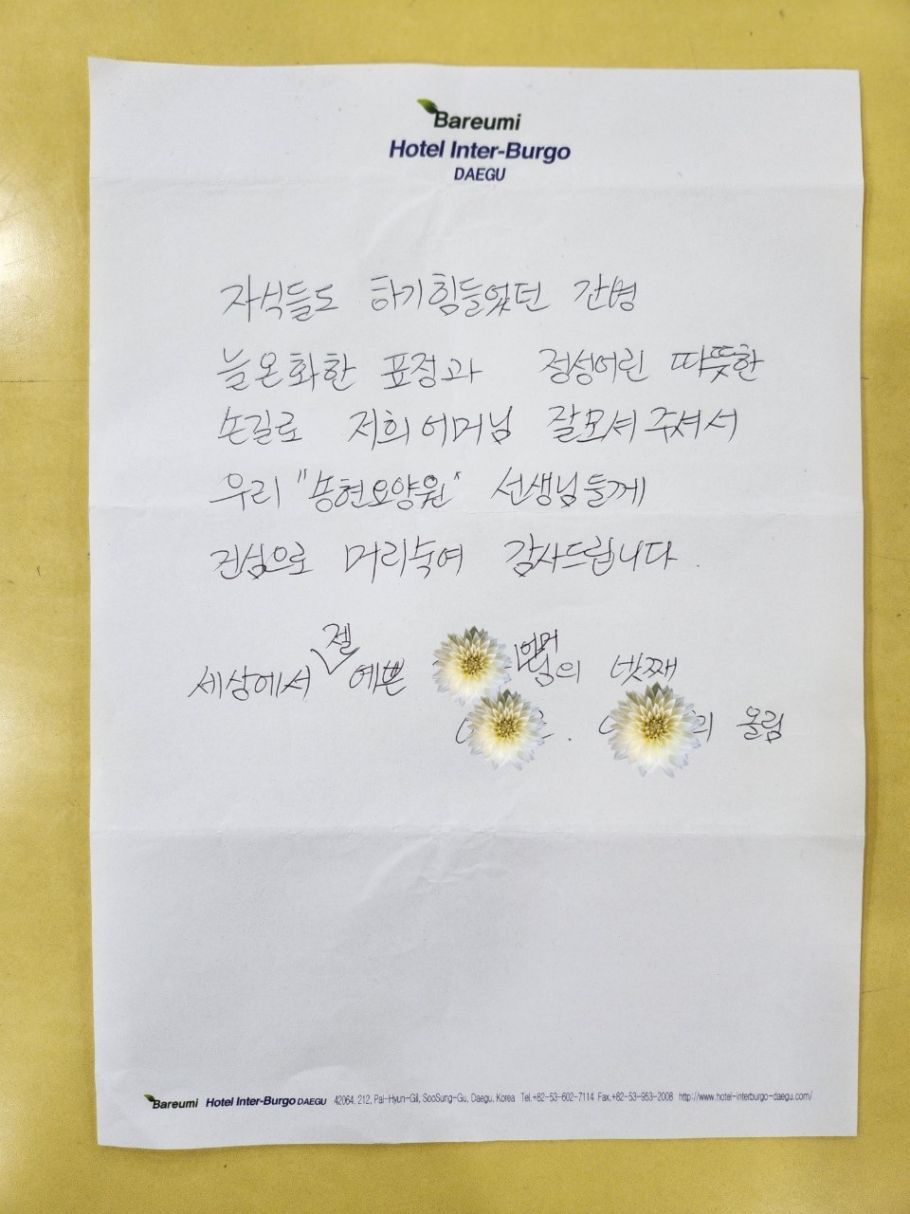 Bareumi
Hotel Inter-Burgo
DAEGU
자식들도 하기힘들었던 간병
늘온화한 표정과 정성어린 따뜻한
손길로 저희어머님 잘모셔주셔서
우리 "송현요양원" 선생님들께
진심으로 머리숙여 감사드립니다.
세상에서 젤 예쁜 어머님의 넷째
올림
Bareumi Hotel Inter-Burgo DAEGU 42064, 212, Pal-Hyun-Gil, SooSung-Gu, Daegu, Korea Tel.+82-53-602-7114 Fax.+82-53-953-2008 http://www.hotel-interburgo-daegu.com/